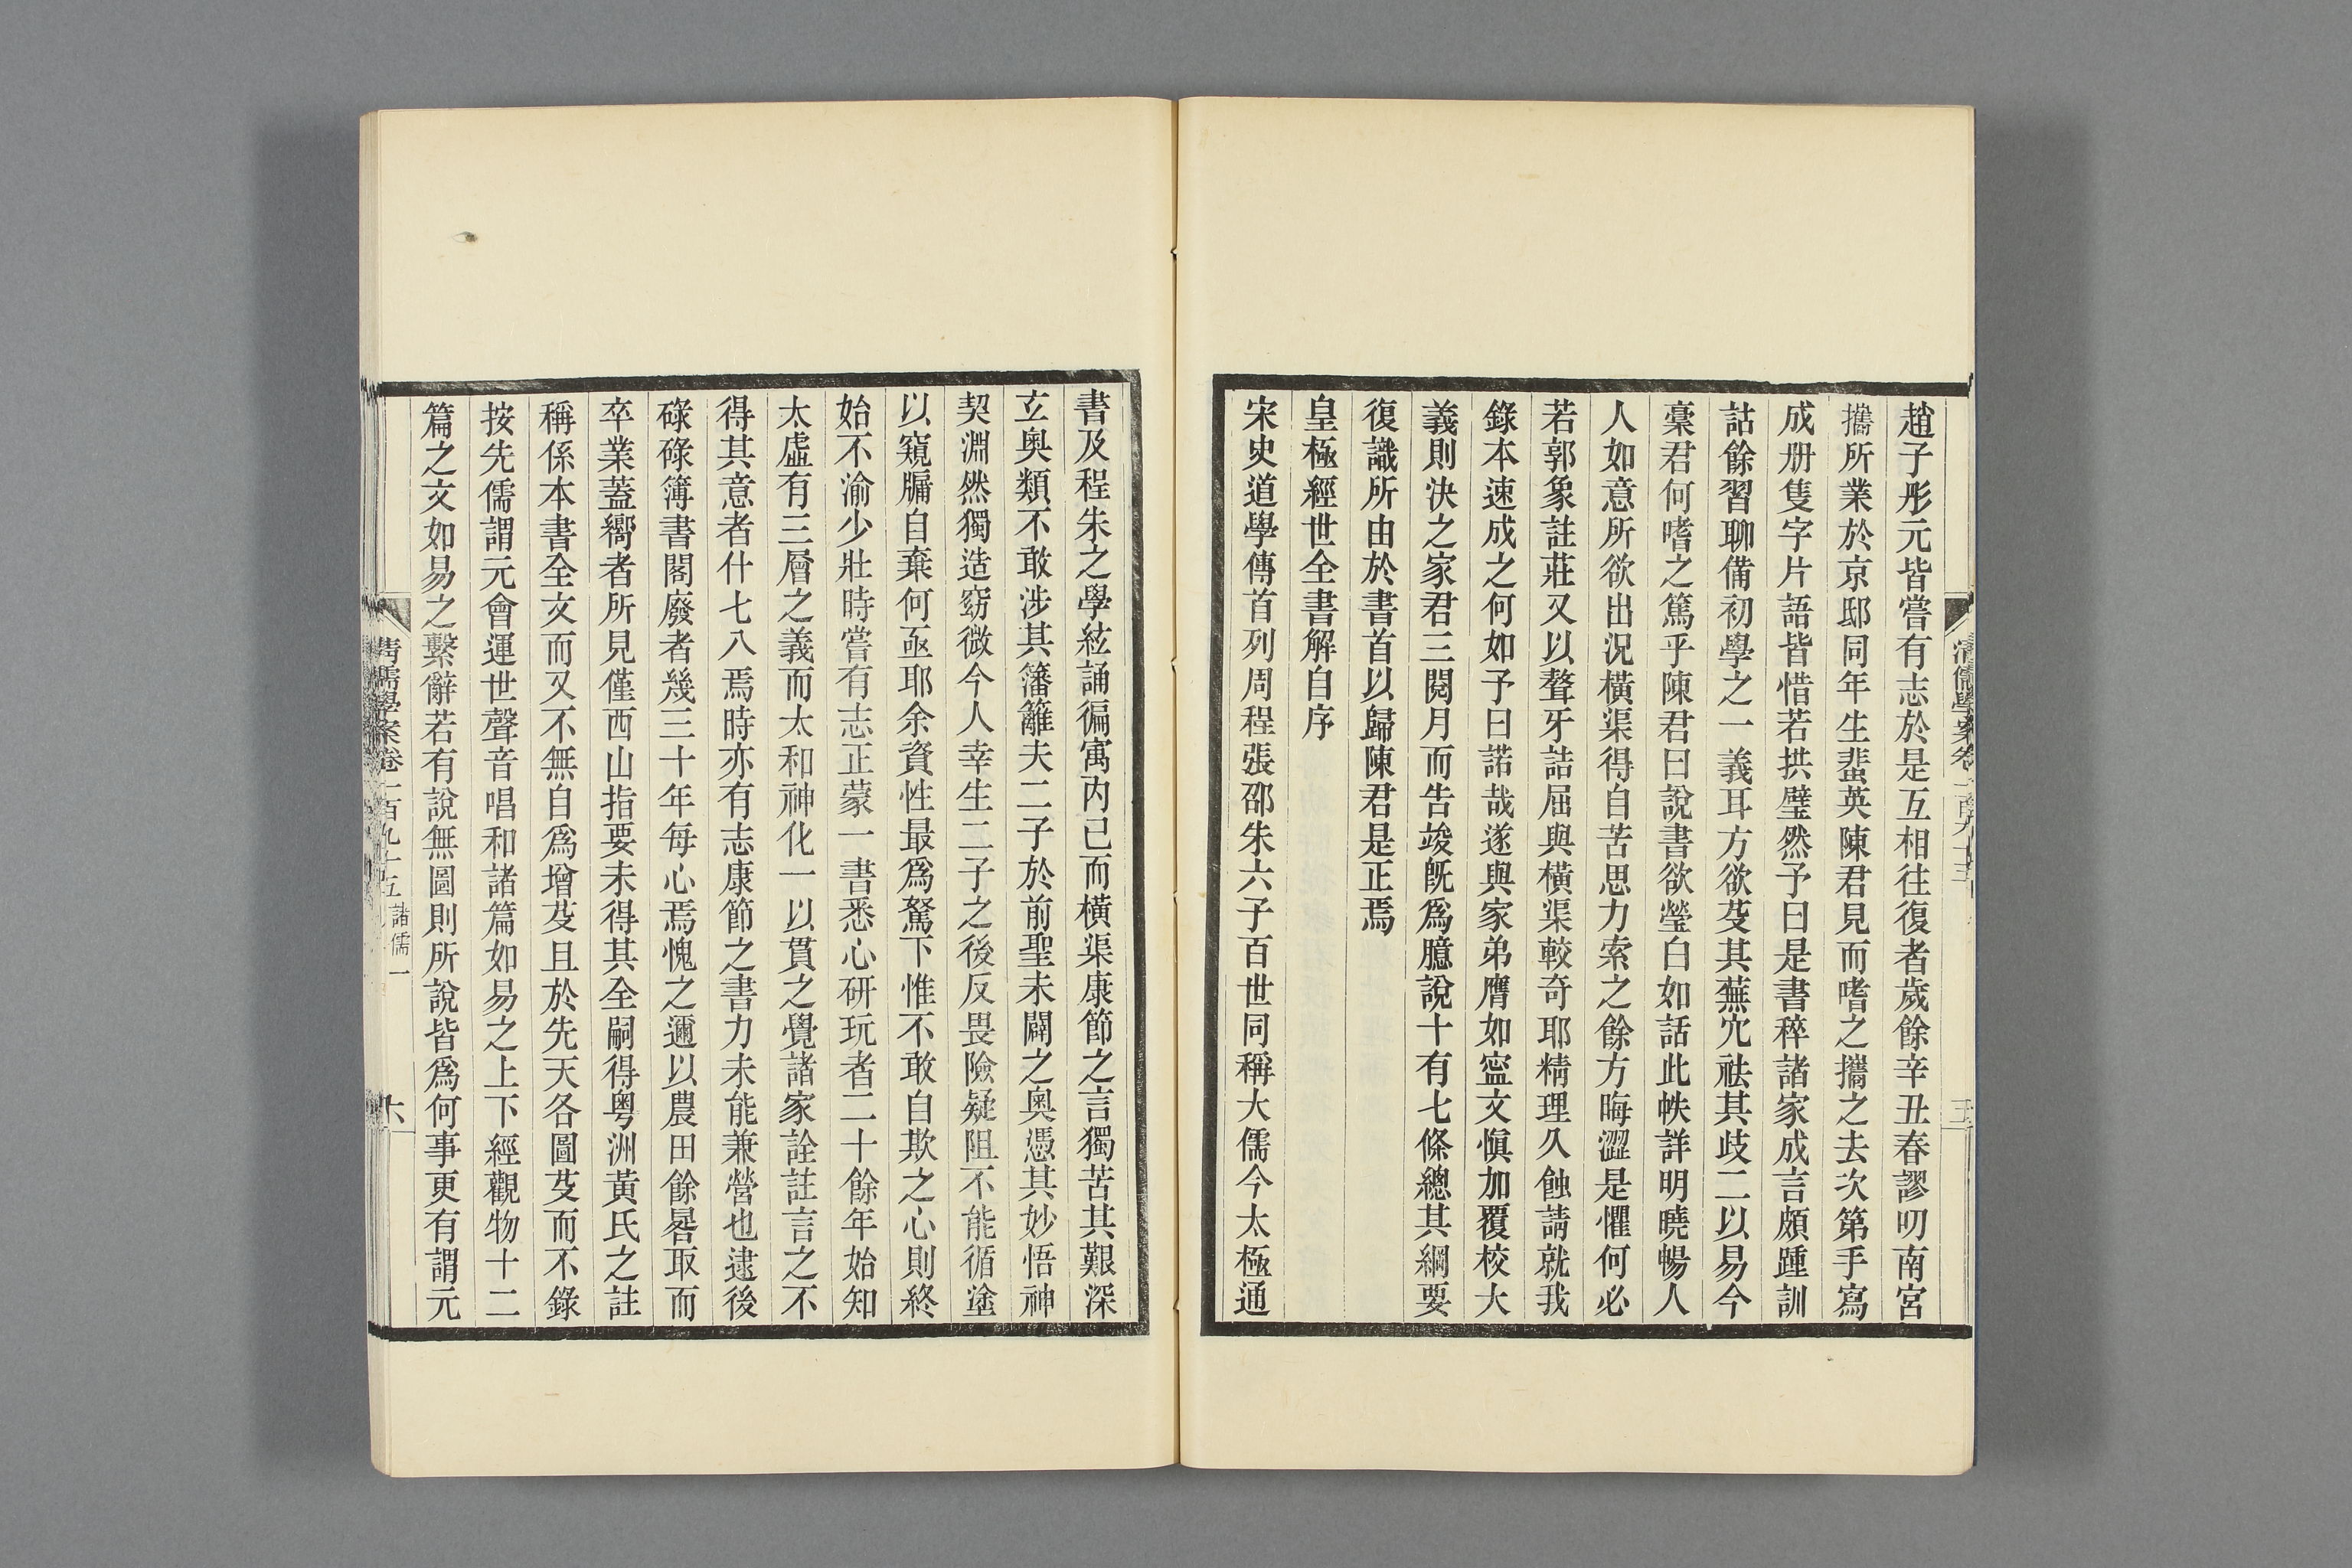 趙子彤元皆嘗有志於是互相往復者歲餘辛丑春謬叨南宮
攜所業於京邸同年生蜚英陳君見而嗜之攜之去次第手寫
成册隻字片語皆惜若拱璧然予曰是書稡諸家成言頗踵訓
詁餘習聊備初學之一義耳方欲芟其蕪宂祛其歧二以易今
稾君何嗜之篤乎陳君曰說書欲瑩白如話此帙詳明曉暢人
人如意所欲出況橫渠得自苦思力索之餘方晦澀是懼何必
若郭象註莊又以聱牙詰屈與橫渠較奇耶精理久蝕請就我
錄本速成之何如予曰諾哉遂與家弟膺如寍文愼加覆校大
義則決之家君三閱月而告竣旣爲臆說十有七條總其綱要
復識所由於書首以歸陳君是正焉
皇極經世全書解自序
宋史道學傳首列周程張邵朱六子百世同稱大儒今太極通
書及程朱之學絃誦徧寓內已而橫渠康節之言獨苦其艱深
玄奧類不敢涉其籓籬夫二子於前聖未闢之奧憑其妙悟神
契淵然獨造窈微今人幸生二子之後反畏險疑阻不能循塗
以窺牖自棄何亟耶余資性最爲駑下惟不敢自欺之心則終
始不渝少壯時嘗有志正蒙一書悉心研玩者二十餘年始知
太虛有三層之義而太和神化一以貫之覺諸家詮註言之不
得其意者什七八焉時亦有志康節之書力未能兼營也逮後
碌碌簿書閣廢者幾三十年每心焉愧之邇以農田餘晷取而
卒業蓋嚮者所見僅西山指要未得其全嗣得粤洲黃氏之註
稱係本書全文而又不無自爲增芟且於先天各圖芟而不錄
按先儒謂元會運世聲音唱和諸篇如易之上下經觀物十二
篇之文如易之繫辭若有說無圖則所說皆爲何事更有謂元
清儒學案卷一百九十五 諸儒一
六